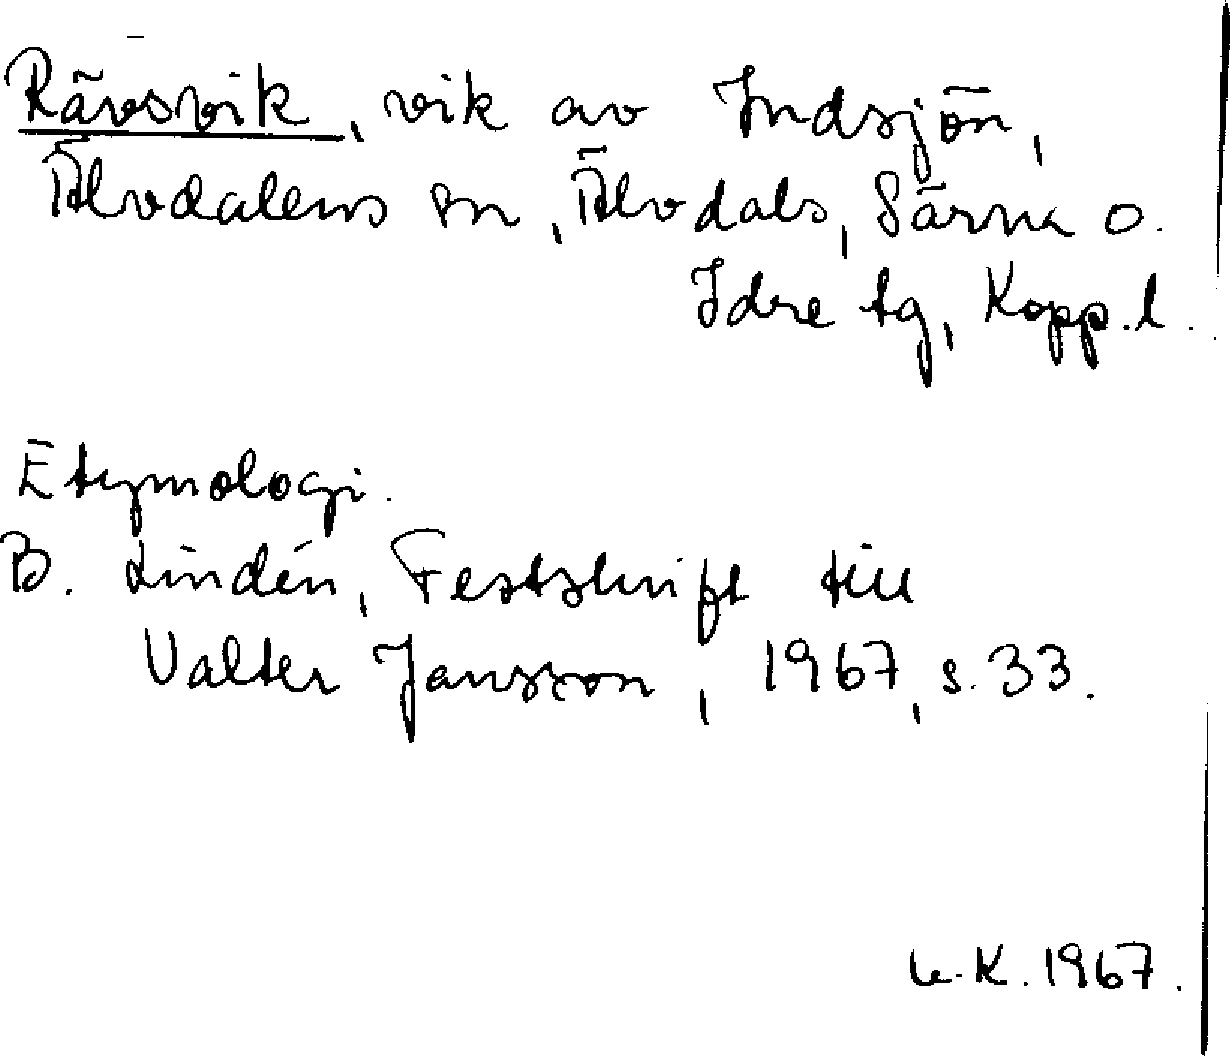 Rävsvik, vik av Indsjön,
Älvdalens sn, Älvdals, Särna o.
Idre tg, Kopp.l.
Etymologi.
B. Lindén, Festskrift till
Valter Jansson, 1967, s. 33.
K. 1967.